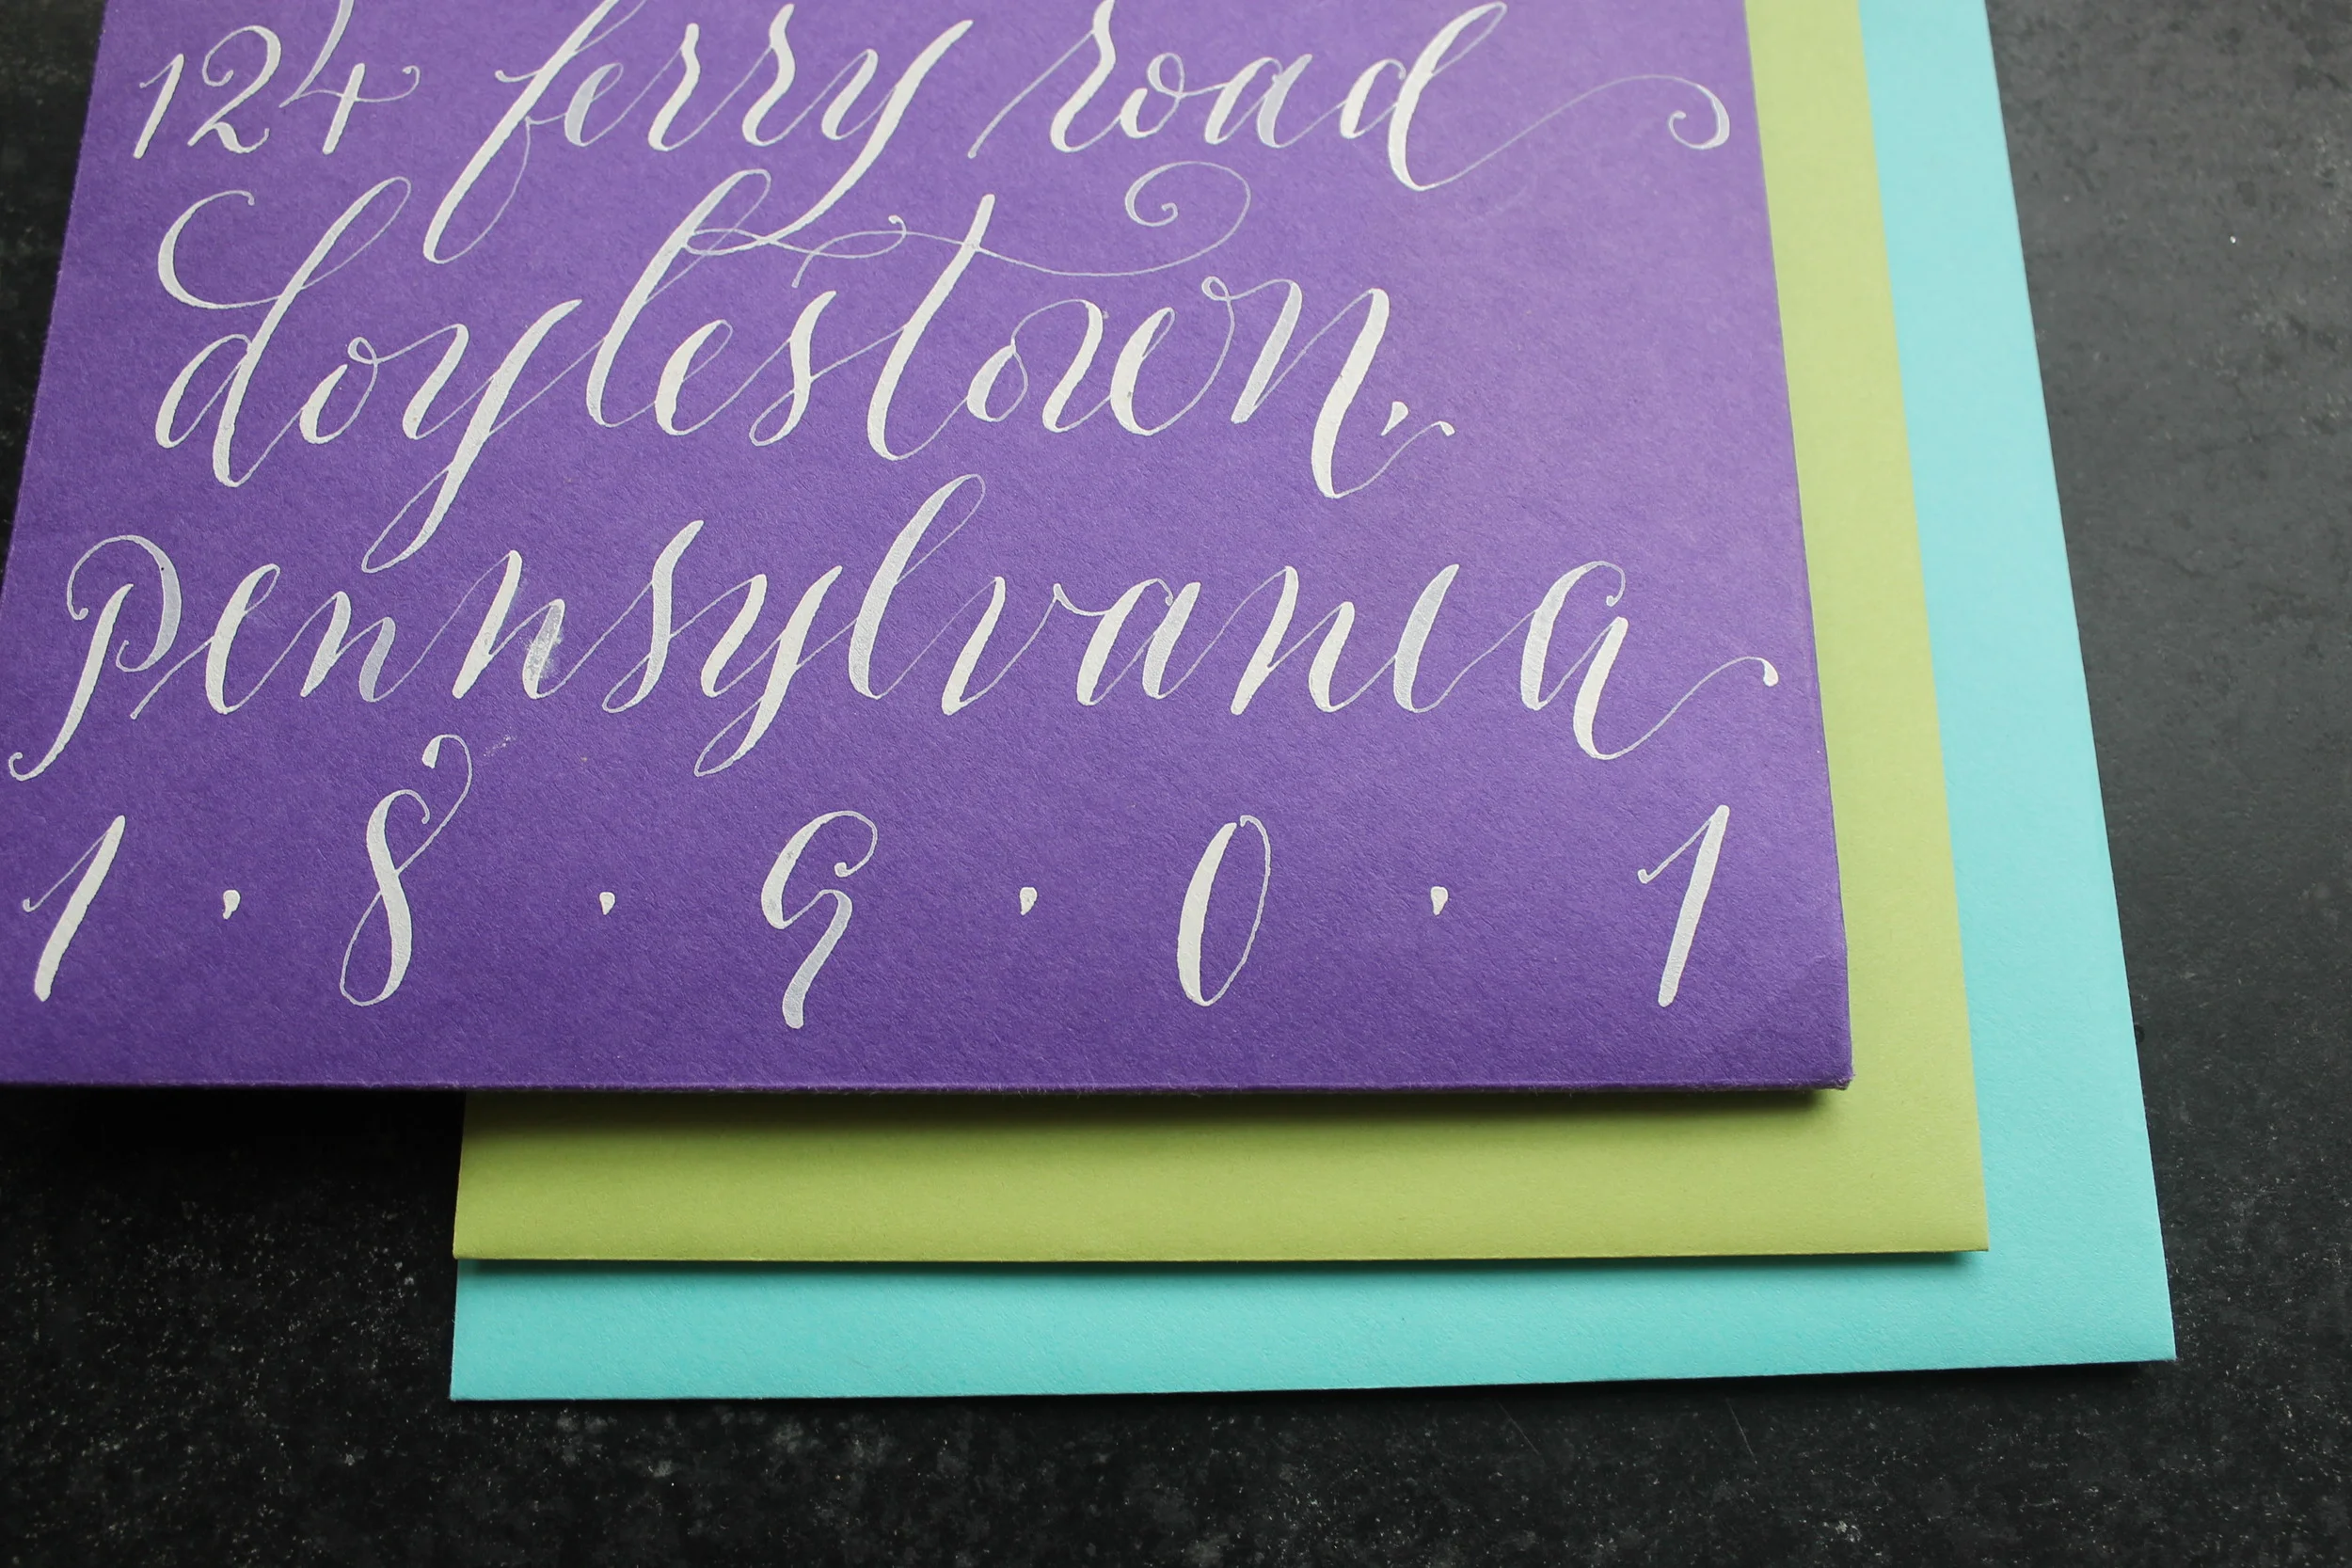 124 ferry road
doylestown,
Pennsylvania
1 · 8 · 9 · 0 · 1